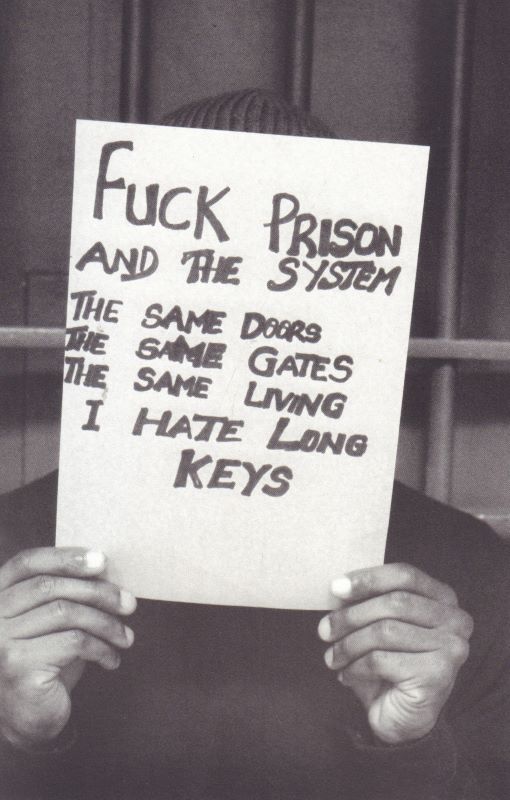 FUCK PRISON
AND THE SYSTEM
THE SAME DOORS
THE SAME GATES
THE SAME LIVING
I HATE LONG
KEYS